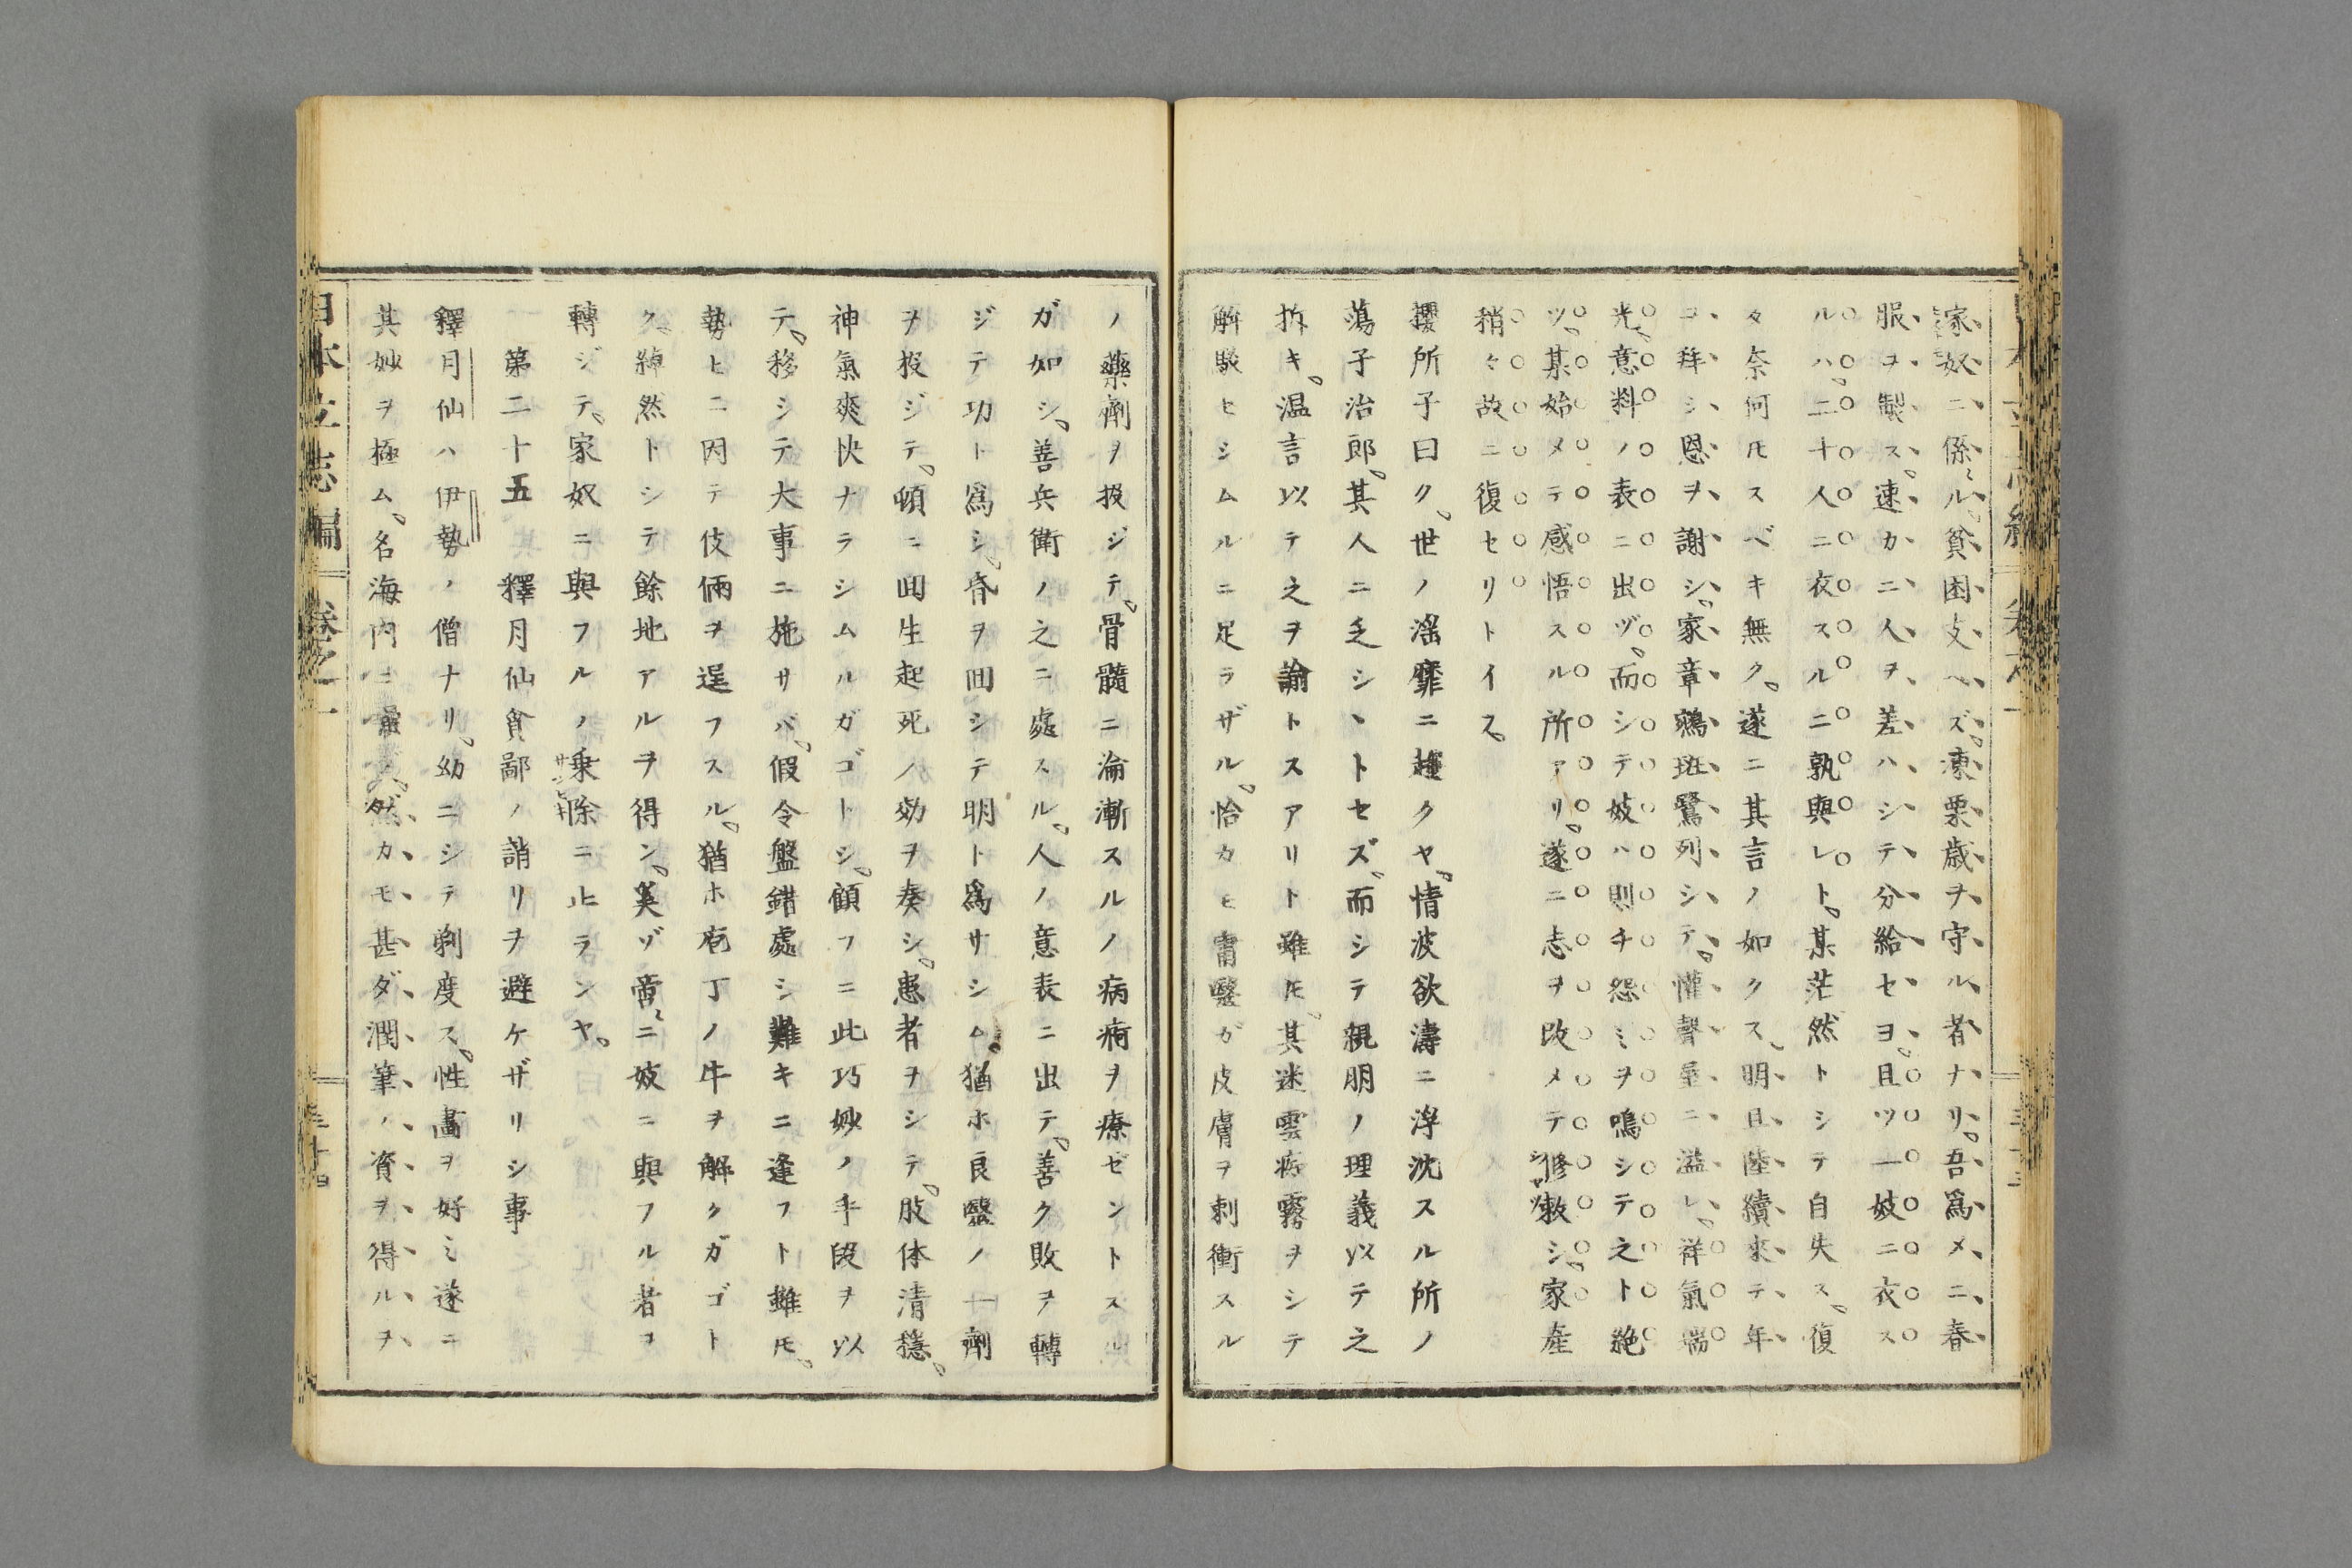 家奴ニ係ル。貧困支ヘズ。凍栗歳ヲ守ル者ナリ。吾爲メニ春
服ヲ製ス。速カニ人ヲ差ハシテ分給セヨ。且ツ一妓ニ衣ス
ルハ。二十人ニ衣スルニ孰與レト。某茫然トシテ自失ス。復
タ奈何トモスベキ無ク。遂ニ其言ノ如クス。明旦陸續來テ年
ヲ拜シ恩ヲ謝シ。家章鶉斑鷺列シテ。懽聲屋ニ溢レ。祥氣端
光。意料ノ表ニ出ヅ。而シテ妓ハ則チ怨ミヲ鳴シテ之ト絶
ツ。某始メテ感悟スル所アリ。遂ニ志ヲ改メテ修敕シ。家産
稍々故ニ復セリトイフ。
擾所子曰ク。世ノ滛靡ニ趨クヤ。情波欲濤ニ浮沈スル所ノ
蕩子治郎。其人ニ乏シヽトセズ。而シテ親朋ノ理義以テ之
拆キ。温言以テ之ヲ諭トスアリト雖トモ。其迷雲痴霧ヲシテ
解駁セシムルニ足ラザル。恰カモ庸醫ガ皮膚ヲ刺衝スル
ノ藥劑ヲ投ジテ。骨髓ニ淪漸スルノ病痾ヲ療ゼントスル
ガ如シ。善兵衛ノ之ニ處スル。人ノ意表ニ出テ。善ク敗ヲ轉
ジテ功ト爲シ。昏ヲ回シテ明ト爲サシム。猶ホ良醫ノ一劑
ヲ投ジテ。頓ニ回生起死ノ効ヲ奏シ。患者ヲシテ。肢体清穩。
神氣爽快ナラシムルガゴトシ。顧フニ此巧妙ノ手段ヲ以
テ。移シテ大事ニ施サバ。假令盤錯處シ難キニ逢フト雖トモ。
勢ヒニ因テ伎倆ヲ逞フスル。猶ホ庖丁ノ牛ヲ解クガゴト
ク。綽然トシテ餘地アルヲ得ン。奚ゾ啻ニ妓ニ與フル者ヲ
轉ジテ。家奴ニ與フルノ乘除ニ止ランヤ。
第二十五　釋月仙貪鄙ノ誚リヲ避ケザリシ事
釋月仙ハ伊勢ノ僧ナリ。幼ニシテ剃度ス。性畵ヲ好ミ遂ニ
其妙ヲ極ム。名海内ニ然カモ甚ダ潤筆ノ資ヲ得ルヲ
日本立志編　卷之一　三十四